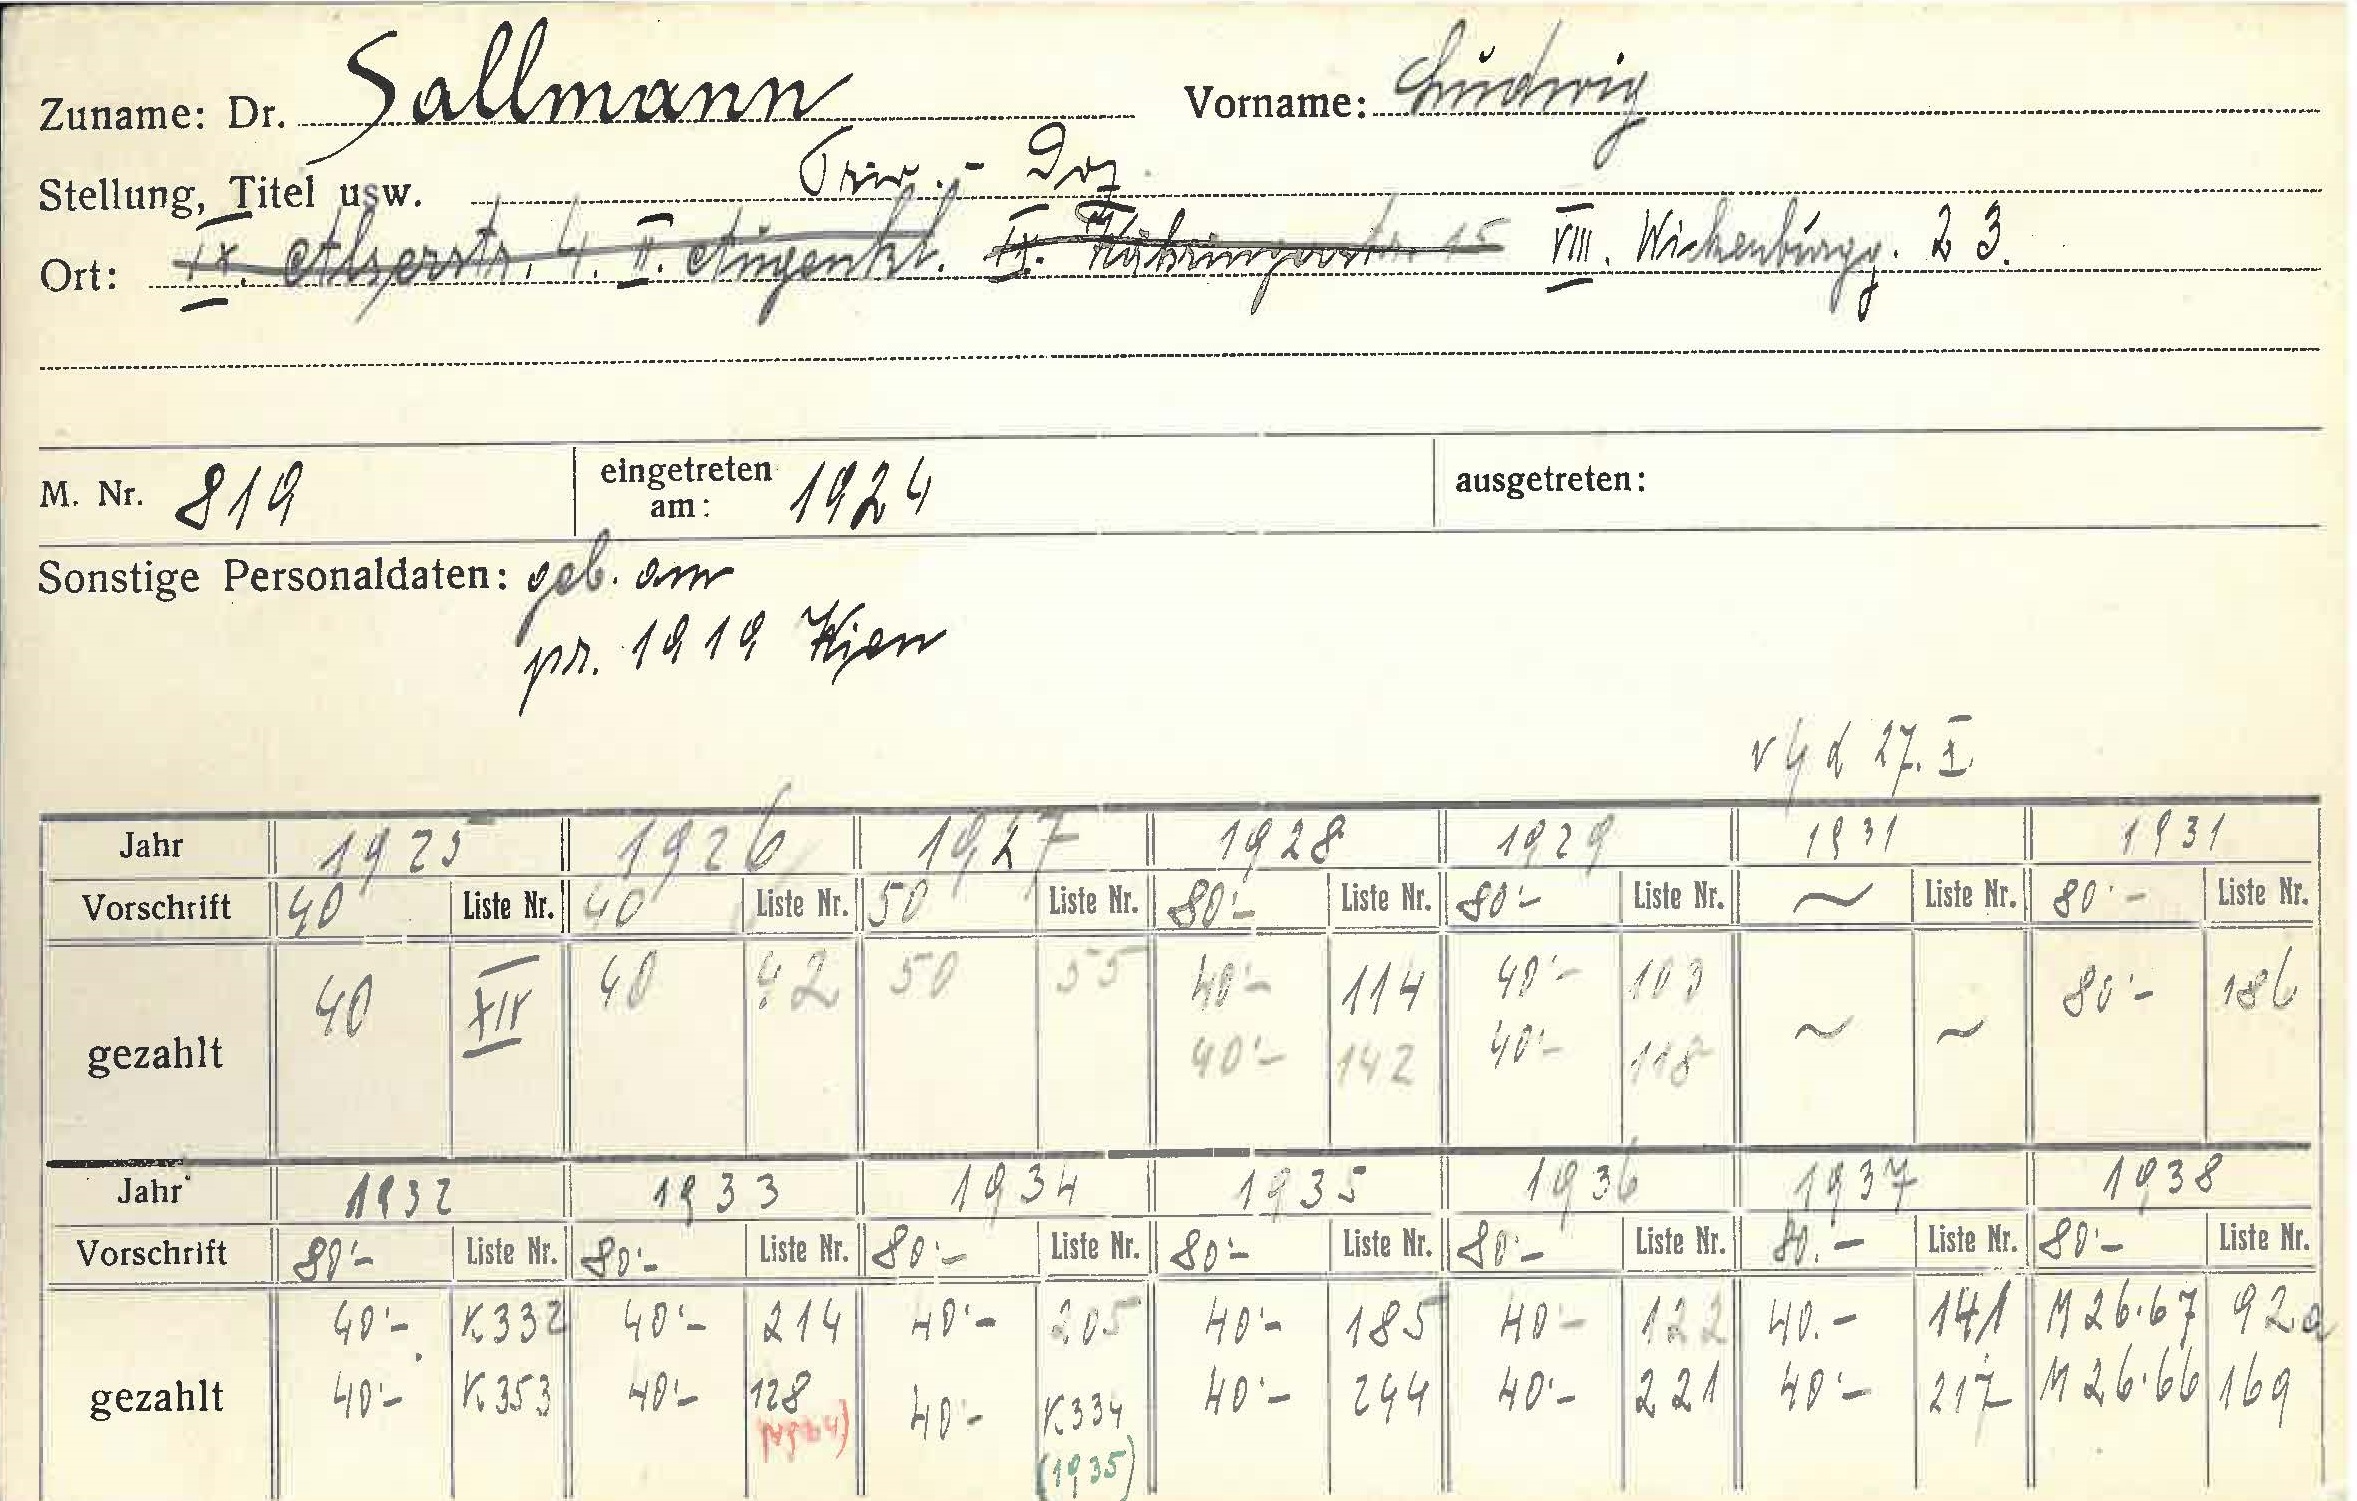 Zuname: Dr. Sallmann Vorname: Ludwig
Stellung, Titel usw. Priv.-Doz.
Ort: IX. Alserstr. 4. II. Augenkl. IX. Währingerstr. 15 VIII. Wickenburgg. 23.
M. Nr. 819 eingetreten am: 1924 ausgetreten:
Sonstige Personaldaten: geb. am
pr. 1919 Wien
27. X
Jahr 1925 1926 1927 1928 1929 1931 1931
Vorschrift 40 Liste Nr. 40 Liste Nr. 50 Liste Nr. 80'- Liste Nr. 80'- Liste Nr. ~ Liste Nr. 80'- Liste Nr.
40 XII 40 42 50 55 40'- 114 40'- 103 ~ ~ 80'- 186
gezahlt 40'- 142 40'- 118
Jahr 1932 1933 1934 1935 1936 1937 1938
Vorschrift 80'- Liste Nr. 80'- Liste Nr. 80'- Liste Nr. 80'- Liste Nr. 80'- Liste Nr. 80.- Liste Nr. 80'- Liste Nr.
40'- K332 40'- 214 40'- 205 40'- 185 40- 122 40.- 141 M 26·67 92a
gezahlt 40'- K353 40'- 128 40'- K334 40'- 244 40'- 221 40'- 217 M 26·66 169
(1935)